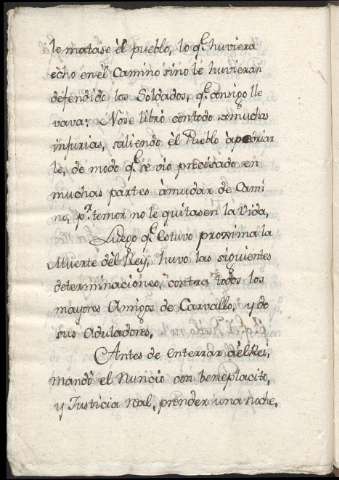 le matase él pueblo, lo q.e huviera
echo en él Camino sino lé huvieran
defendido los Soldados, q.e consigo lle
vava: No se libró contodo ámuchas
injurias, saliendo él Pueblo áp
le, de modo q.e se vio precisado en
muchas partes ámudar de Cami
no, p.r temor no le quitasen la Vida,
Luego q.e estuvo proxsima la
Muerte del Rey, huvo las siguientes
determinaciones, contra todos los
mayores Amigos de Carvallo, y de
sus Aduladores,
Antes de enterrar ál Rei,
mandó el Nuncio con beneplacito,
y Justicia real, prender una noche,